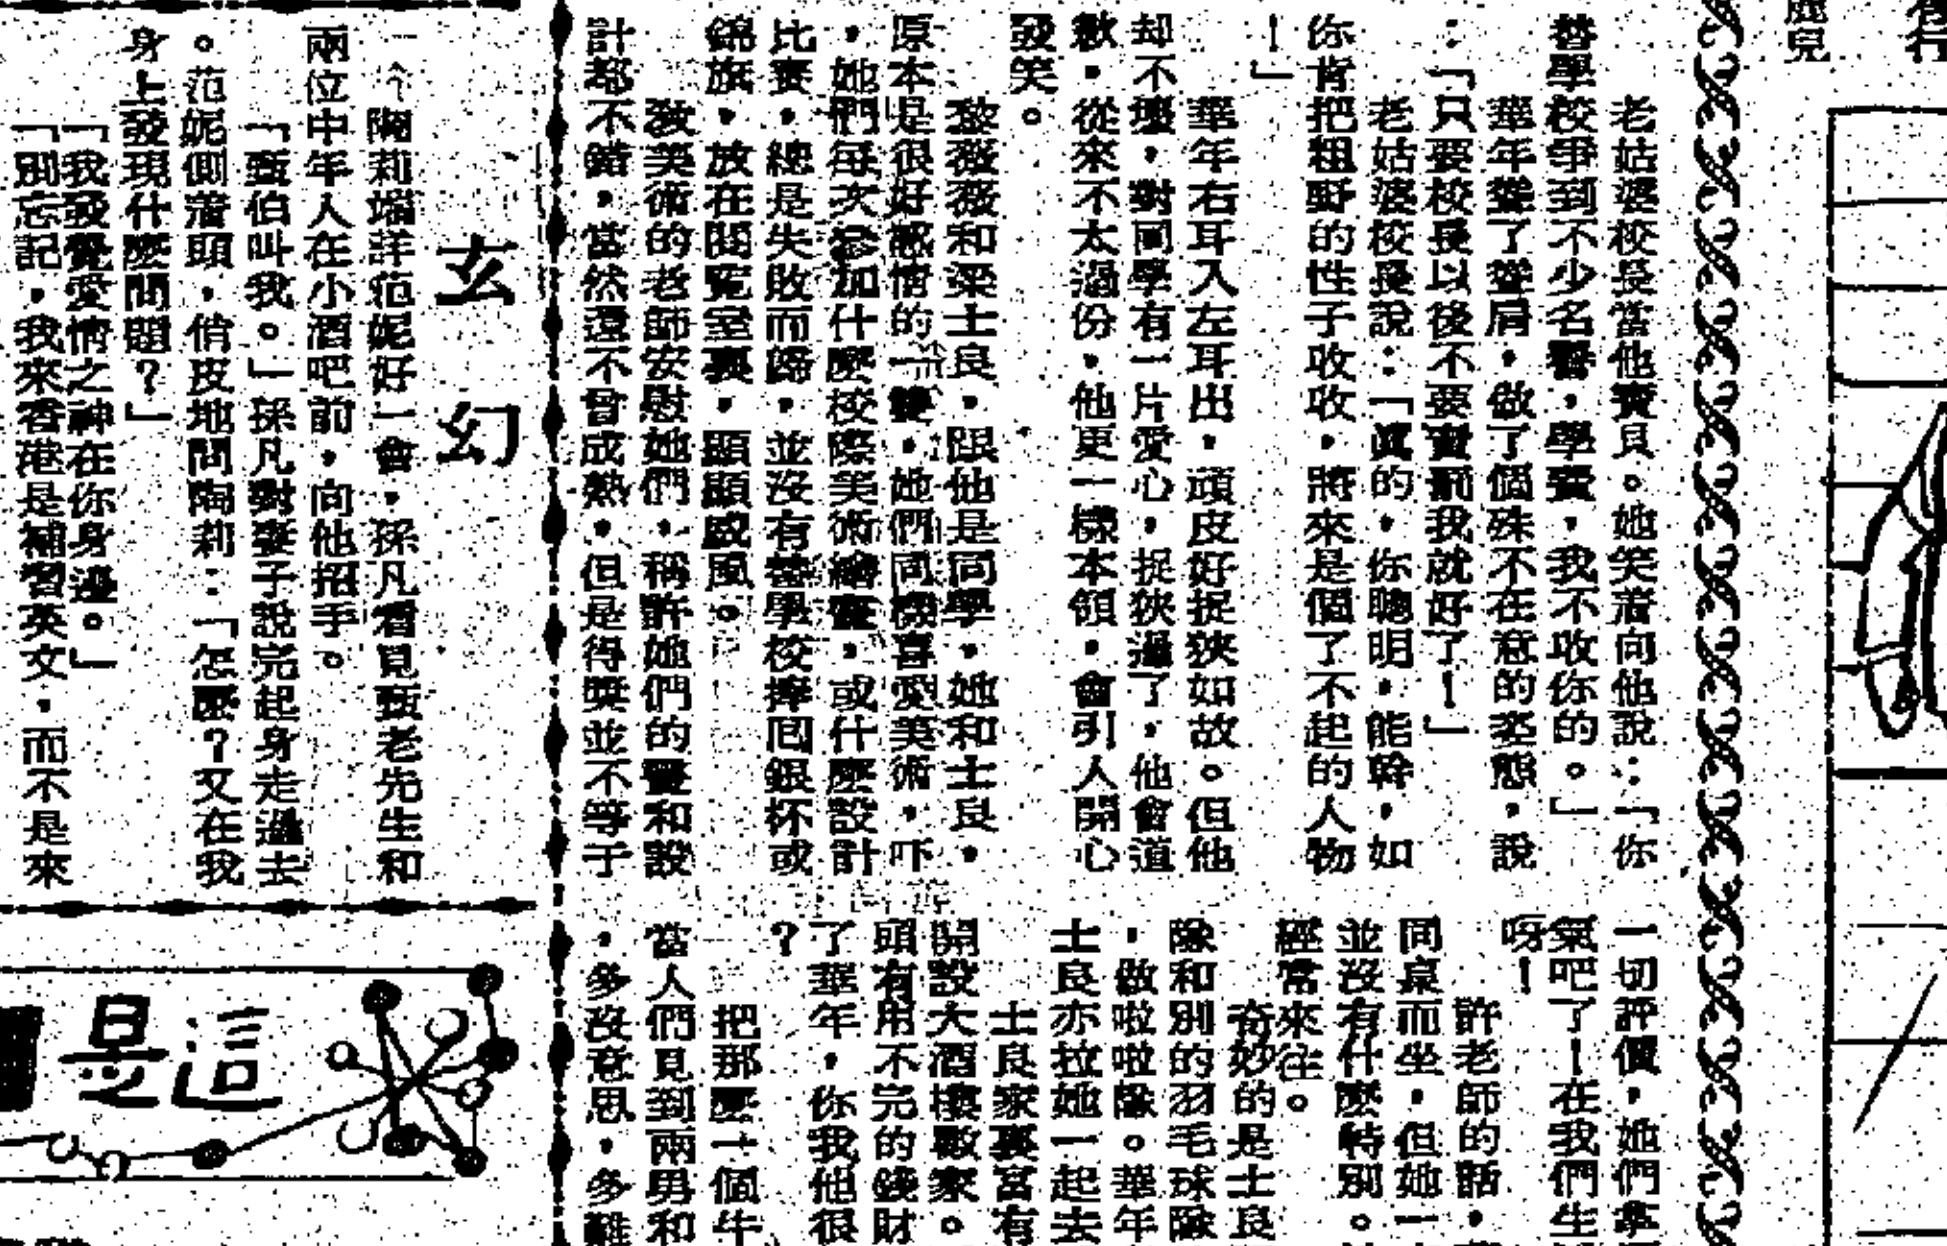 鹿兒
老姑婆校長當他寶貝。她笑着向他說:「你
替學校爭到不少名譽,學費,我不收你的。」
華年聳了聳肩,做了個殊不在意的姿態,說
:「只要校長以後不要賣我就好了!」
老姑婆校長說:「真的,你聰明,能幹,如
你肯把粗野的性子收收,將來是個了不起的人物
!」
華年右耳入左耳出,頑皮好捉狹如故。但他
却不壞,對同學有一片愛心,捉狹過了,他會道
歉,從來不太過份,他更一樣本領,會引人開心
發笑。
黎薇薇和梁士良,跟他是同學,她和士良,
原本是很好感情的一雙,她們同樣喜愛美術,吓
,她們每次參加什麼校際美術繪畫,或什麼設計
比賽,總是失敗而歸,並沒有替學校捧回銀杯或
錦旗,放在閱覽室裏,顯顯威風。
教美術的老師安慰她們,稱許她們的畫和設
計都不錯,當然還不曾成熟,但是得獎並不等于
一切評價,她們
氣吧了!在我們生
呀!
許老師的話,
同桌而坐,但她一
並沒有什麼特別。
經常來往。
奇妙的是士良
隊和別的羽毛球隊
,做啦啦隊。華年
士良亦拉她一起去
士良家裏富有
開設大酒樓數家。
頭有用不完的錢財
了華年,你我他很
?
把那麼一個牛
當人們見到兩男和
,多沒意思,多難
玄幻
陶莉端詳范妮好一會,孫凡看見甄老先生和
兩位中年人在小酒吧前,向他招手。
「甄伯叫我。」孫凡對妻子說完起身走過去
。范妮側着頭,俏皮地問陶莉:「怎麼?又在我
身上發現什麼問題?」
「我發覺愛情之神在你身邊。」
「別忘記,我來香港是補習英文,而不是來
這是